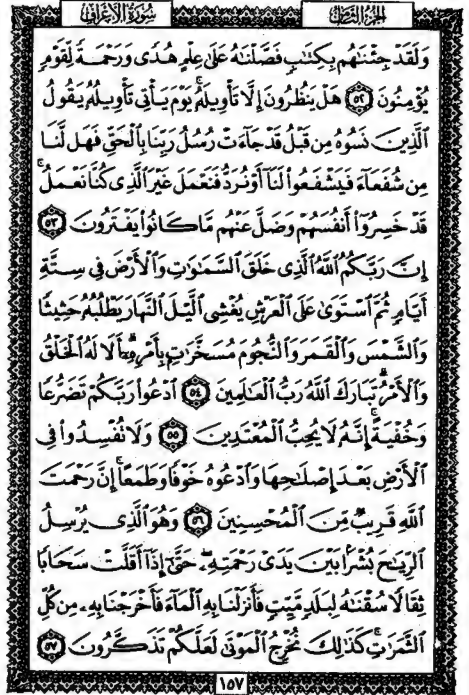 سُورَةُ الأَعْرَافِ الجُزْءُ الثَّامِنُ
وَلَقَدْ جِئْنَٰهُم بِكِتَٰبٍ فَصَّلْنَٰهُ عَلَىٰ عِلْمٍ هُدًى وَرَحْمَةً لِّقَوْمٍ
يُؤْمِنُونَ ٥٢ هَلْ يَنظُرُونَ إِلَّا تَأْوِيلَهُۥ ۚ يَوْمَ يَأْتِى تَأْوِيلُهُۥ يَقُولُ
ٱلَّذِينَ نَسُوهُ مِن قَبْلُ قَدْ جَآءَتْ رُسُلُ رَبِّنَا بِٱلْحَقِّ فَهَل لَّنَا
مِن شُفَعَآءَ فَيَشْفَعُوا۟ لَنَآ أَوْ نُرَدُّ فَنَعْمَلَ غَيْرَ ٱلَّذِى كُنَّا نَعْمَلُ ۚ
قَدْ خَسِرُوٓا۟ أَنفُسَهُمْ وَضَلَّ عَنْهُم مَّا كَانُوا۟ يَفْتَرُونَ ٥٣
إِنَّ رَبَّكُمُ ٱللَّهُ ٱلَّذِى خَلَقَ ٱلسَّمَٰوَٰتِ وَٱلْأَرْضَ فِى سِتَّةِ
أَيَّامٍ ثُمَّ ٱسْتَوَىٰ عَلَى ٱلْعَرْشِ يُغْشِى ٱلَّيْلَ ٱلنَّهَارَ يَطْلُبُهُۥ حَثِيثًا
وَٱلشَّمْسَ وَٱلْقَمَرَ وَٱلنُّجُومَ مُسَخَّرَٰتٍۭ بِأَمْرِهِۦٓ ۗ أَلَا لَهُ ٱلْخَلْقُ
وَٱلْأَمْرُ ۗ تَبَارَكَ ٱللَّهُ رَبُّ ٱلْعَٰلَمِينَ ٥٤ ٱدْعُوا۟ رَبَّكُمْ تَضَرُّعًا
وَخُفْيَةً ۚ إِنَّهُۥ لَا يُحِبُّ ٱلْمُعْتَدِينَ ٥٥ وَلَا تُفْسِدُوا۟ فِى
ٱلْأَرْضِ بَعْدَ إِصْلَٰحِهَا وَٱدْعُوهُ خَوْفًا وَطَمَعًا ۚ إِنَّ رَحْمَتَ
ٱللَّهِ قَرِيبٌ مِّنَ ٱلْمُحْسِنِينَ ٥٦ وَهُوَ ٱلَّذِى يُرْسِلُ
ٱلرِّيَٰحَ بُشْرًۢا بَيْنَ يَدَىْ رَحْمَتِهِۦ ۖ حَتَّىٰٓ إِذَآ أَقَلَّتْ سَحَابًا
ثِقَالًا سُقْنَٰهُ لِبَلَدٍ مَّيِّتٍ فَأَنزَلْنَا بِهِ ٱلْمَآءَ فَأَخْرَجْنَا بِهِۦ مِن كُلِّ
ٱلثَّمَرَٰتِ ۚ كَذَٰلِكَ نُخْرِجُ ٱلْمَوْتَىٰ لَعَلَّكُمْ تَذَكَّرُونَ ٥٧
١٥٧